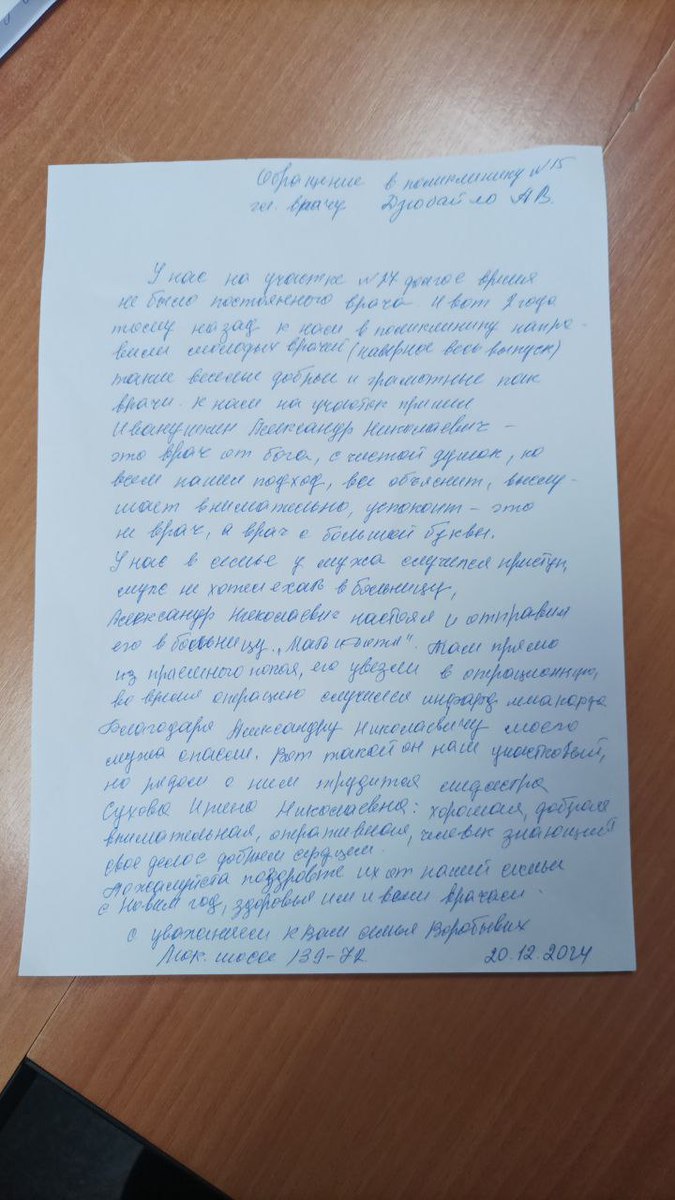 Обращение в поликлинику №15
гл. врачу Дзюбайло А.В.
У нас на участке №27 долгое время
не было постоянного врача. И вот 2 года
тому назад к нам в поликлинику напра-
вили молодых врачей (наверное весь выпуск)
такие веселые добрые и грамотные
врачи. К нам на участок пришел
Иванушкин Александр Николаевич –
это врач от бога, с чистой душой, ко
всем нашел подход, все объяснит, выслу-
шает внимательно, успокоит – это
не врач, а врач с большой буквы.
У нас в семье у мужа случился приступ,
муж не хотел ехать в больницу,
Александр Николаевич настоял и отправил
его в больницу „Мать и дитя". Там прямо
из приемного покоя, его увезли в операционную,
во время операцию случился инфаркт миакарда.
Благодаря Александру Николаевичу моего
мужа спасли. Вот такой он наш участковый,
но рядом с ним трудится медсестра
Сухова Николаевна: хорошая, добрая
внимательная, оперативная, человек знающий
свое дело с добрым сердцем.
Пожалуйста поздравьте их от нашей семьи
с Новым год, здоровья им и всем врачам.
С уважением к Вам семья Воробьевых
Мос. шоссе 139-72 20.12.2024